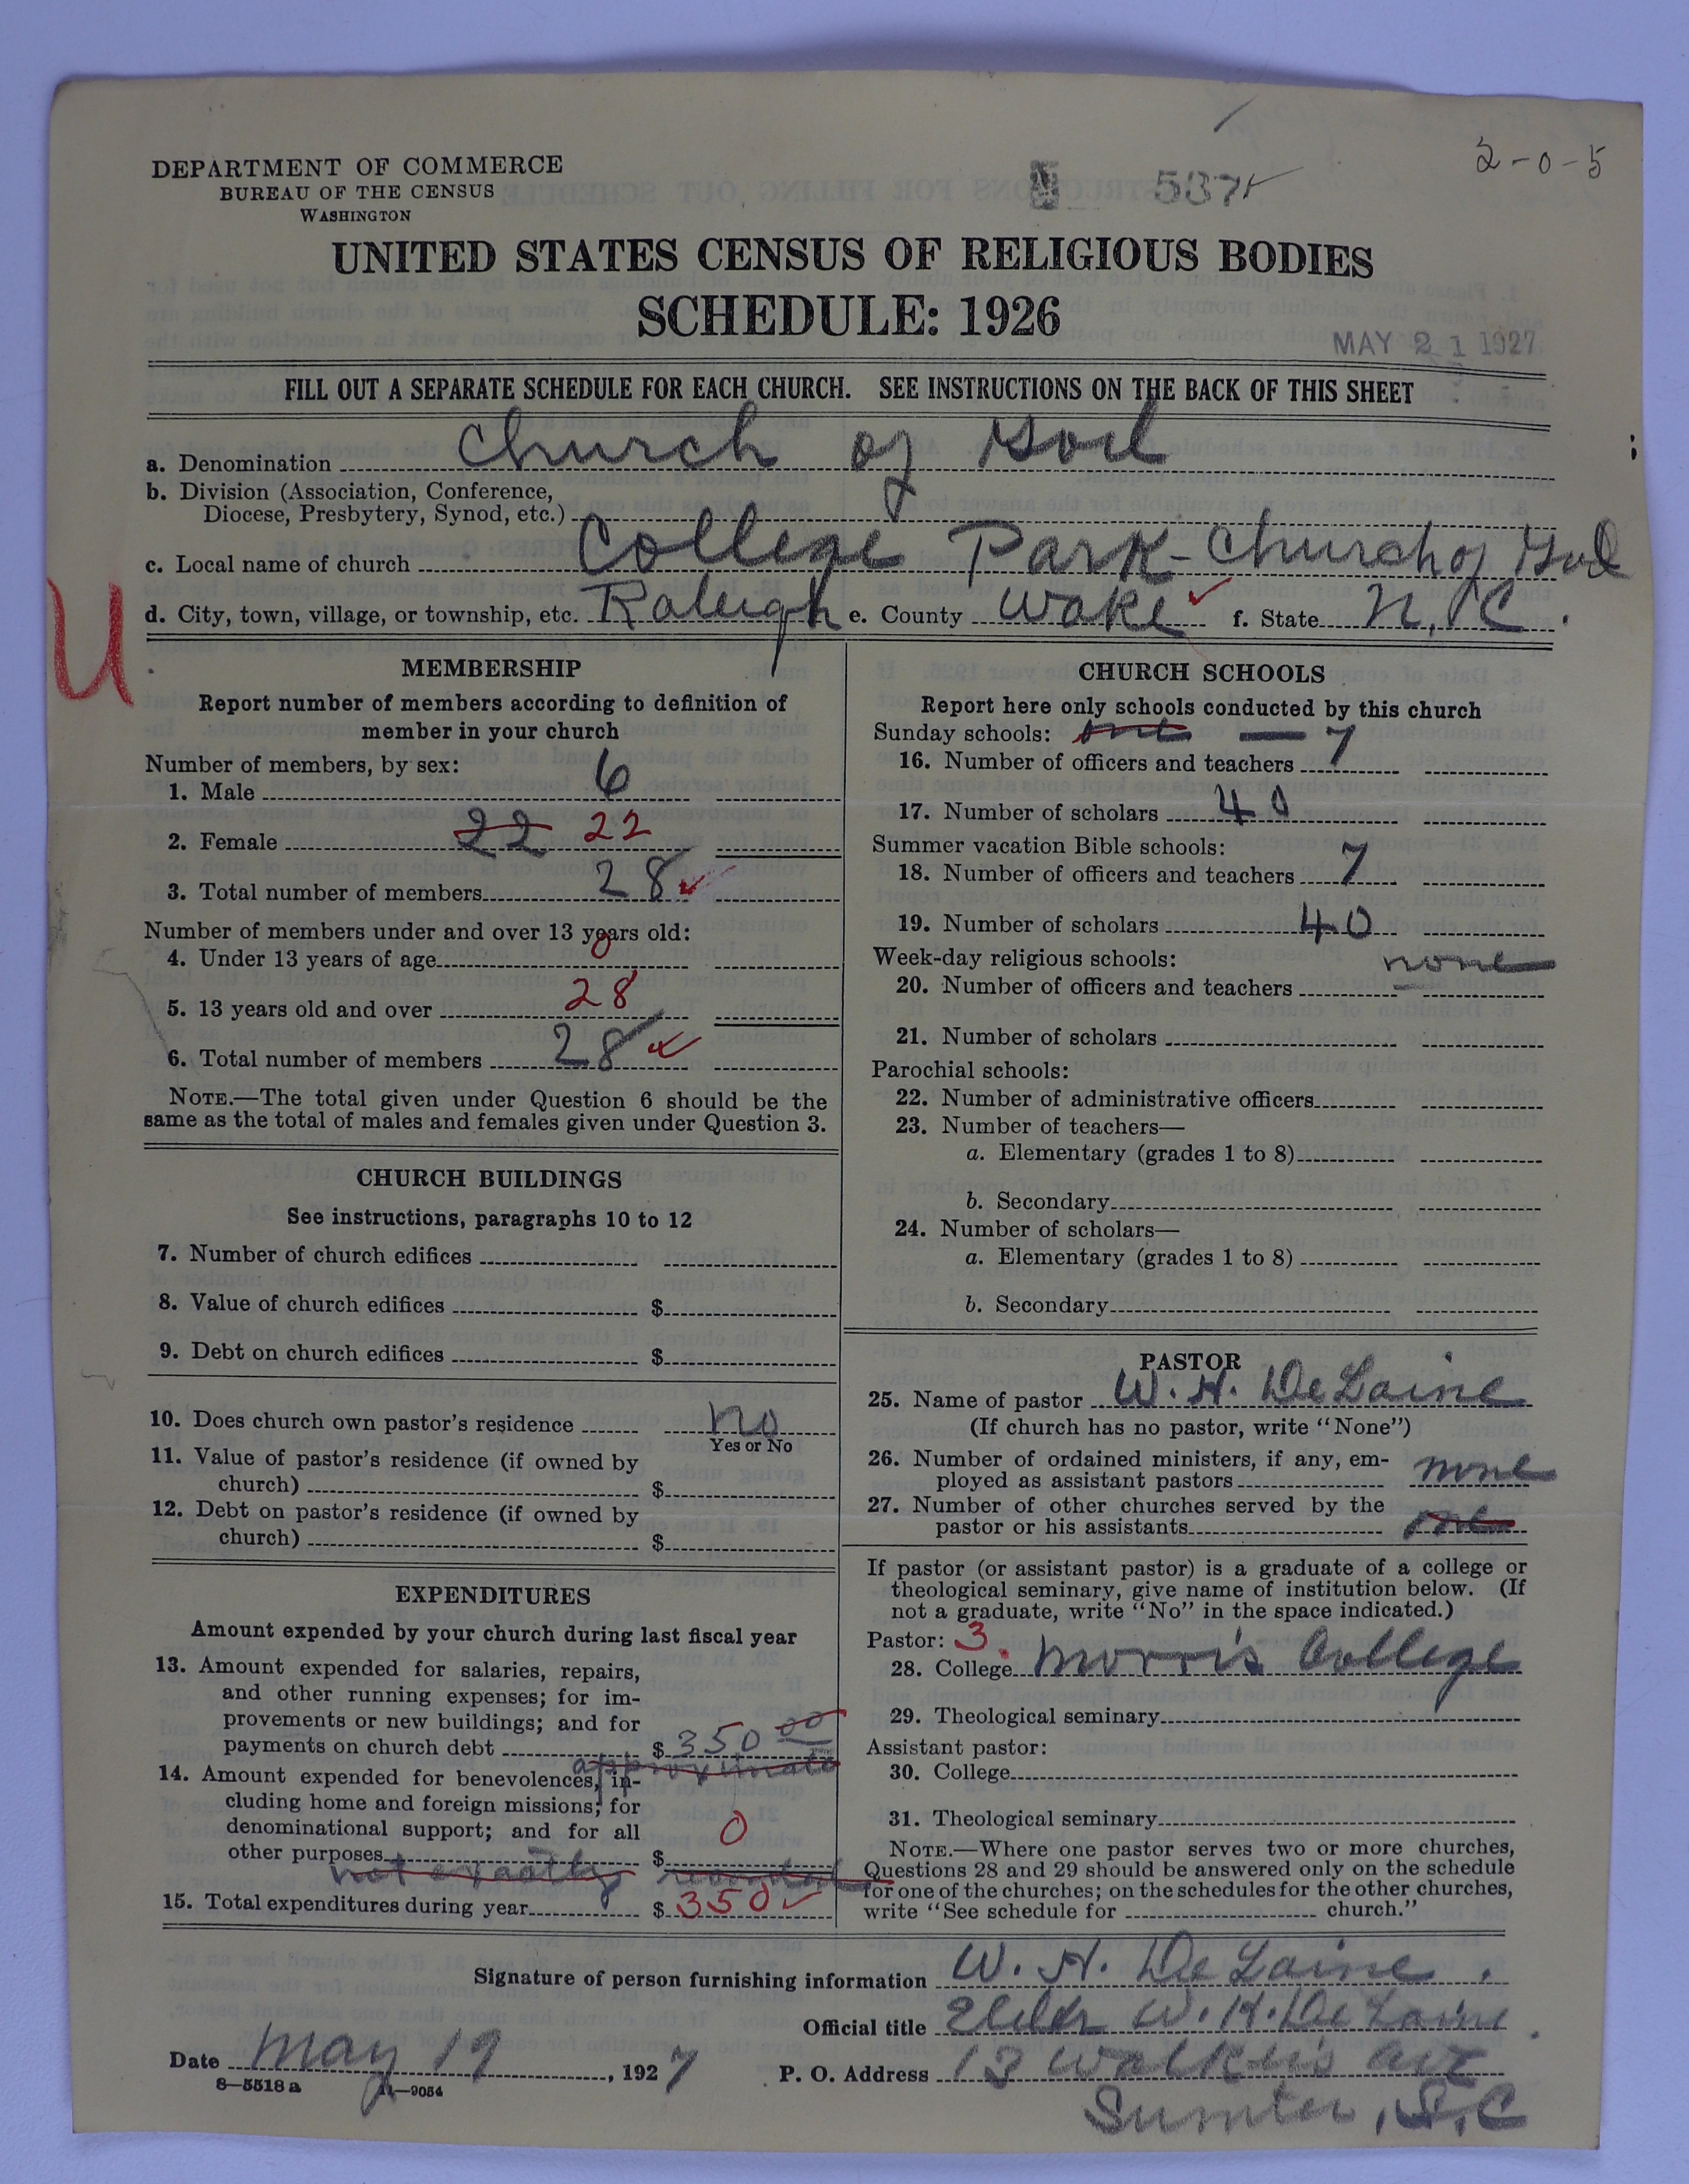 2-0-5
DEPARTMENT OF COMMERCE
BUREAU OF THE CENSUS
WASHINGTON
537
UNITED STATES CENSUS OF RELIGIOUS BODIES
SCHEDULE: 1926
MAY 21 1927
FILL OUT A SEPARATE SCHEDULE FOR EACH CHURCH. SEE INSTRUCTIONS ON THE BACK OF THIS SHEET
a. Denomination Church of God
b. Division (Association, Conference,
Diocese, Presbytery, Synod, etc.)
c. Local name of church College Park - Church of God
d. City, town, village, or township, etc. Raleigh e. County Wake f. State N.C.
U
MEMBERSHIP
Report number of members according to definition of
member in your church
Number of members, by sex:
1. Male 6
2. Female 22 22
3. Total number of members 28
Number of members under and over 13 years old:
4. Under 13 years of age 0
5. 13 years old and over 28
6. Total number of members 28
NOTE.—The total given under Question 6 should be the
same as the total of males and females given under Question 3.
CHURCH BUILDINGS
See instructions, paragraphs 10 to 12
7. Number of church edifices
8. Value of church edifices $
9. Debt on church edifices $
10. Does church own pastor's residence No
Yes or No
11. Value of pastor's residence (if owned by
church) $
12. Debt on pastor's residence (if owned by
church) $
EXPENDITURES
Amount expended by your church during last fiscal year
13. Amount expended for salaries, repairs,
and other running expenses; for im-
provements or new buildings; and for
payments on church debt $ 350 00
approximate
14. Amount expended for benevolences, in-
cluding home and foreign missions; for
denominational support; and for all
other purposes $ 0
not exactly recorded
15. Total expenditures during year $ 350
CHURCH SCHOOLS
Report here only schools conducted by this church
Sunday schools: one — 7
16. Number of officers and teachers
17. Number of scholars 40
Summer vacation Bible schools:
18. Number of officers and teachers 7
19. Number of scholars 40
Week-day religious schools: none
20. Number of officers and teachers
21. Number of scholars
Parochial schools:
22. Number of administrative officers
23. Number of teachers—
a. Elementary (grades 1 to 8)
b. Secondary
24. Number of scholars—
a. Elementary (grades 1 to 8)
b. Secondary
PASTOR
25. Name of pastor W. H. DeLaine
(If church has no pastor, write "None")
26. Number of ordained ministers, if any, em-
ployed as assistant pastors none
27. Number of other churches served by the
pastor or his assistants one
If pastor (or assistant pastor) is a graduate of a college or
theological seminary, give name of institution below. (If
not a graduate, write "No" in the space indicated.)
Pastor: 3
28. College Morris College
29. Theological seminary
Assistant pastor:
30. College
31. Theological seminary
NOTE.—Where one pastor serves two or more churches,
Questions 28 and 29 should be answered only on the schedule
for one of the churches; on the schedules for the other churches,
write "See schedule for church."
Signature of person furnishing information W. H. DeLaine.
Official title Elder W. H. DeLaine.
Date May 19, 1927 P. O. Address 13 Walker's Ave
8—5518 a 11—9054
Sumter, S.C